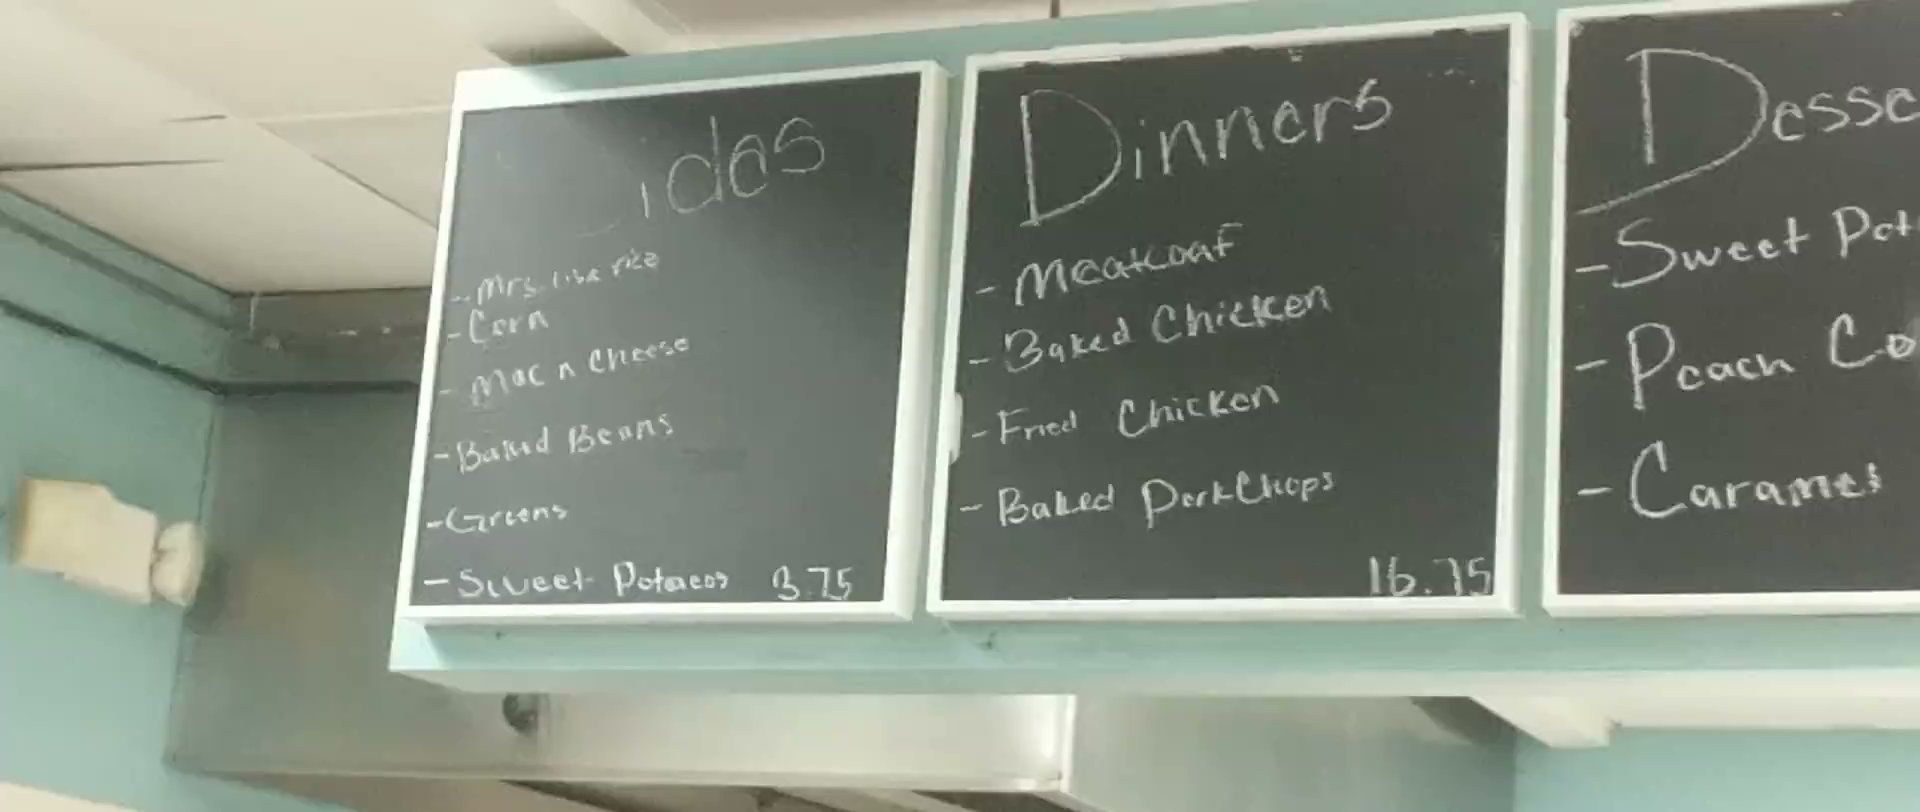 Sides
- Mrs. lisa rice
- Corn
- Mac n Cheese
- Baked Beans
- Greens
- Sweet Potatoes 3.75
Dinners
- Meatloaf
- Baked Chicken
- Fried Chicken
- Baked PorkChops
16.75
Desse
- Sweet Pot
- Peach Co
- Caramel